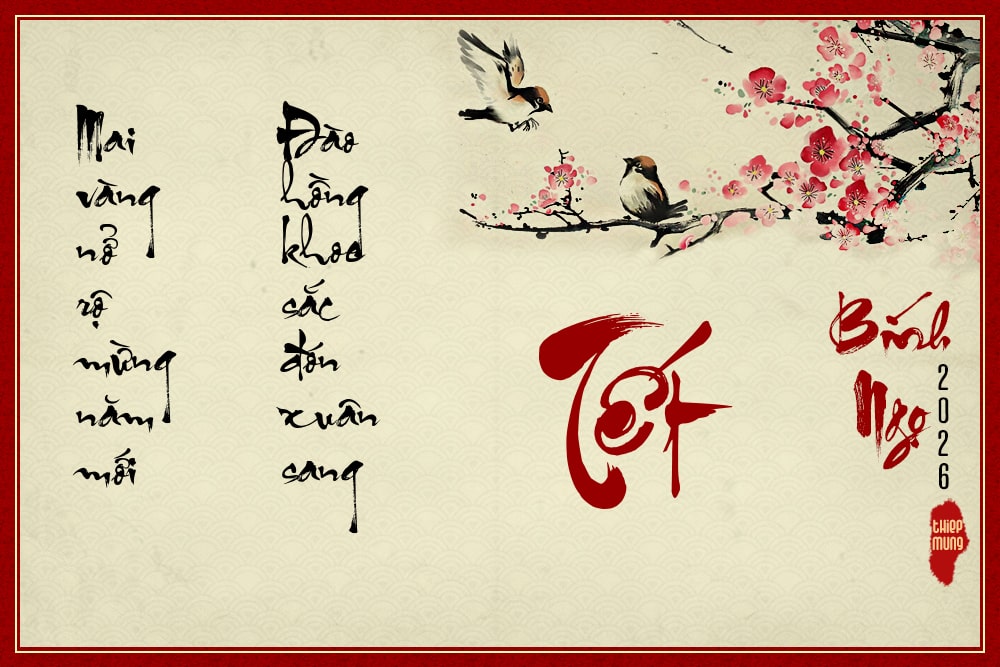 Mai
vàng
nở
rộ
mừng
năm
mới
Đào
hồng
khoe
sắc
đón
xuân
sang
Tết
Bính
Ngọ
2026
thiep
mung